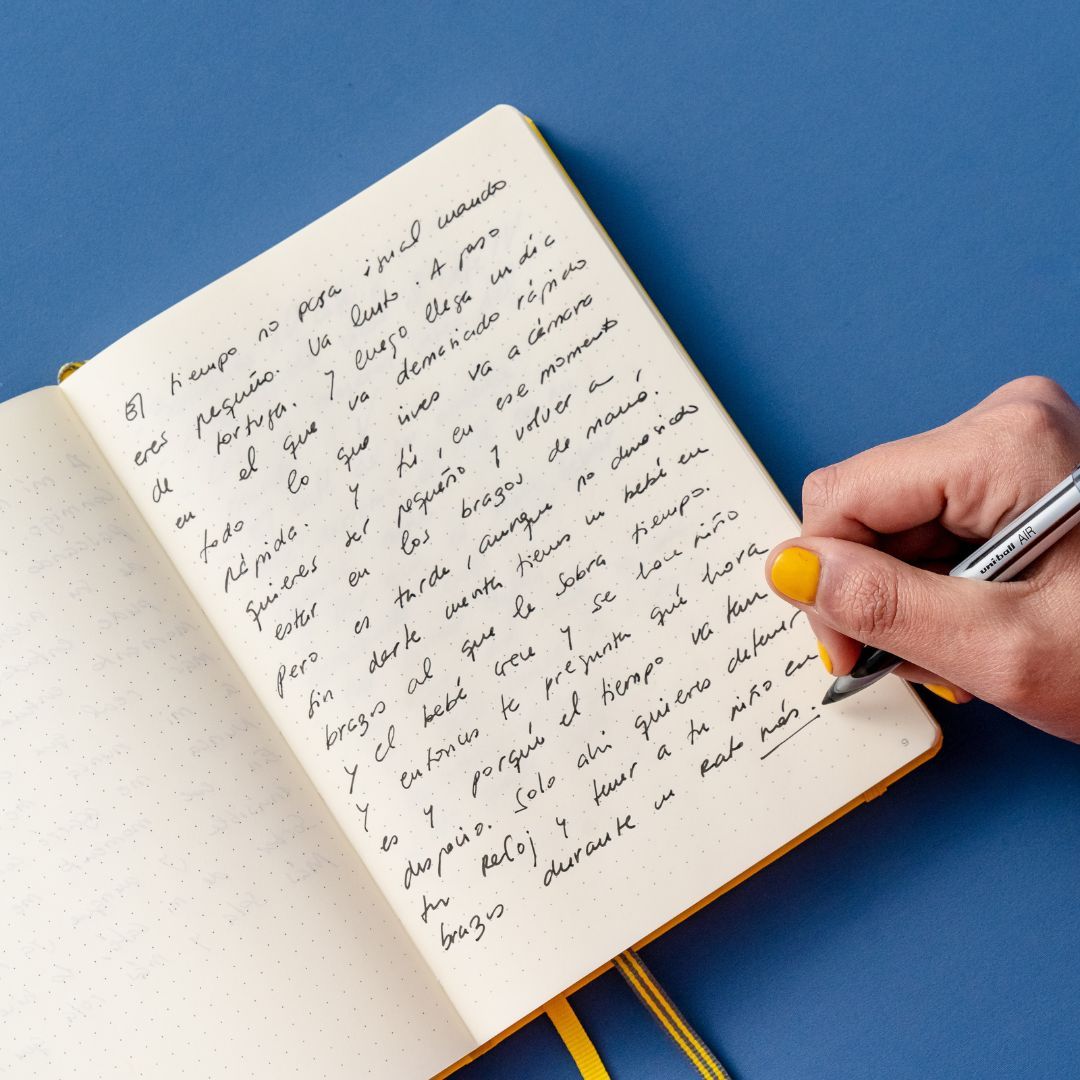 El tiempo no pasa igual cuando
eres pequeño. Va lento. A paso
de tortuga. Y luego llega un día
en el que va demasiado rápido
todo lo que vives va a cámara
rápida. Y tú, en ese momento
quieres ser pequeño y volver a
estar en los brazos de mamá.
pero es tarde, aunque no demasiado
sin darte cuenta tienes un bebé en
brazos al que le sobra tiempo.
y el bebé crece y se hace niño
y entonces te pregunta qué hora
es y porqué el tiempo va tan
despacio. Solo ahí quieres detener
tu reloj y tener a tu niño en
brazos durante un rato más.
9
uni-ball AIR